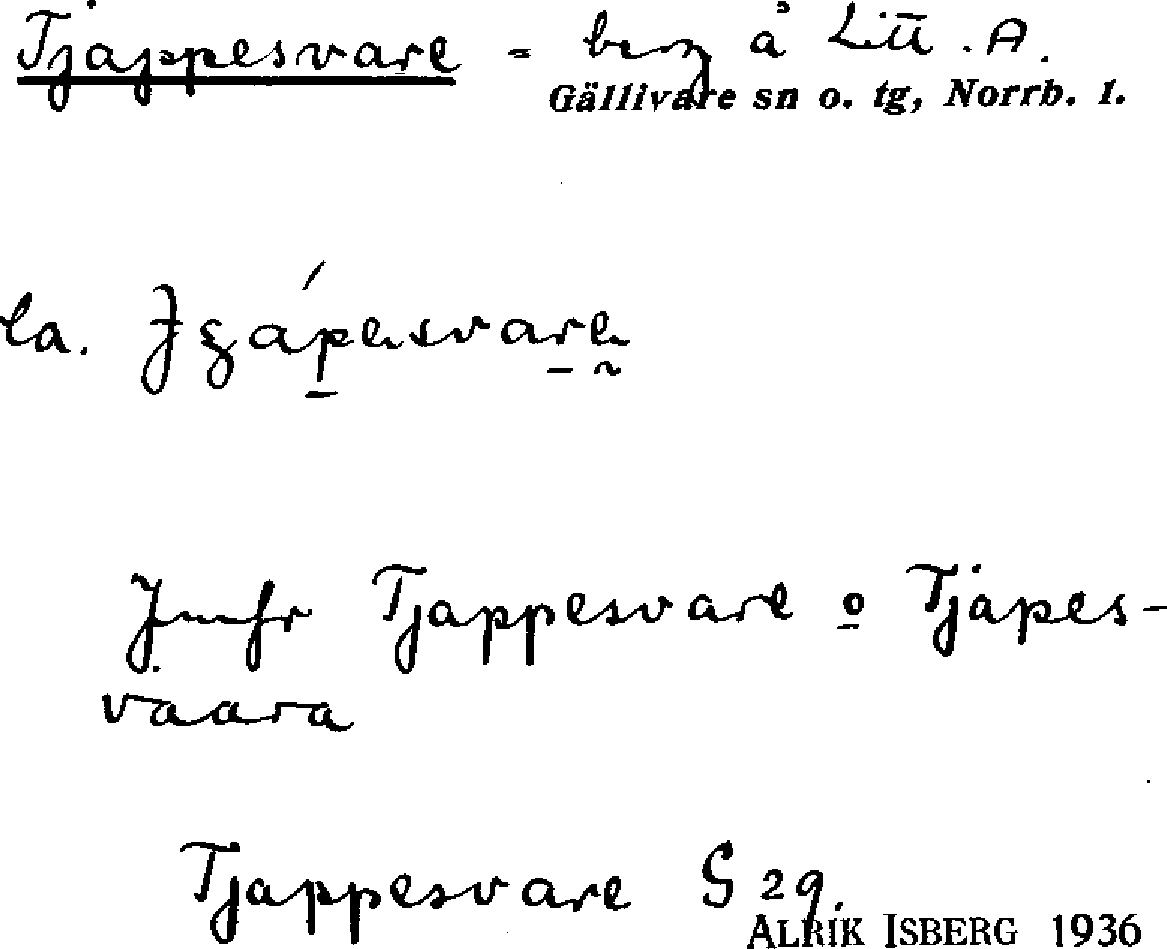 Tjappesvare - berg å Litt. A.
Gällivare sn o. tg, Norrb. l.
la.
Jmfr Tjappesvare o Tjapes-
vaara
Tjappesvare S 29.
ALRIK ISBERG 1936